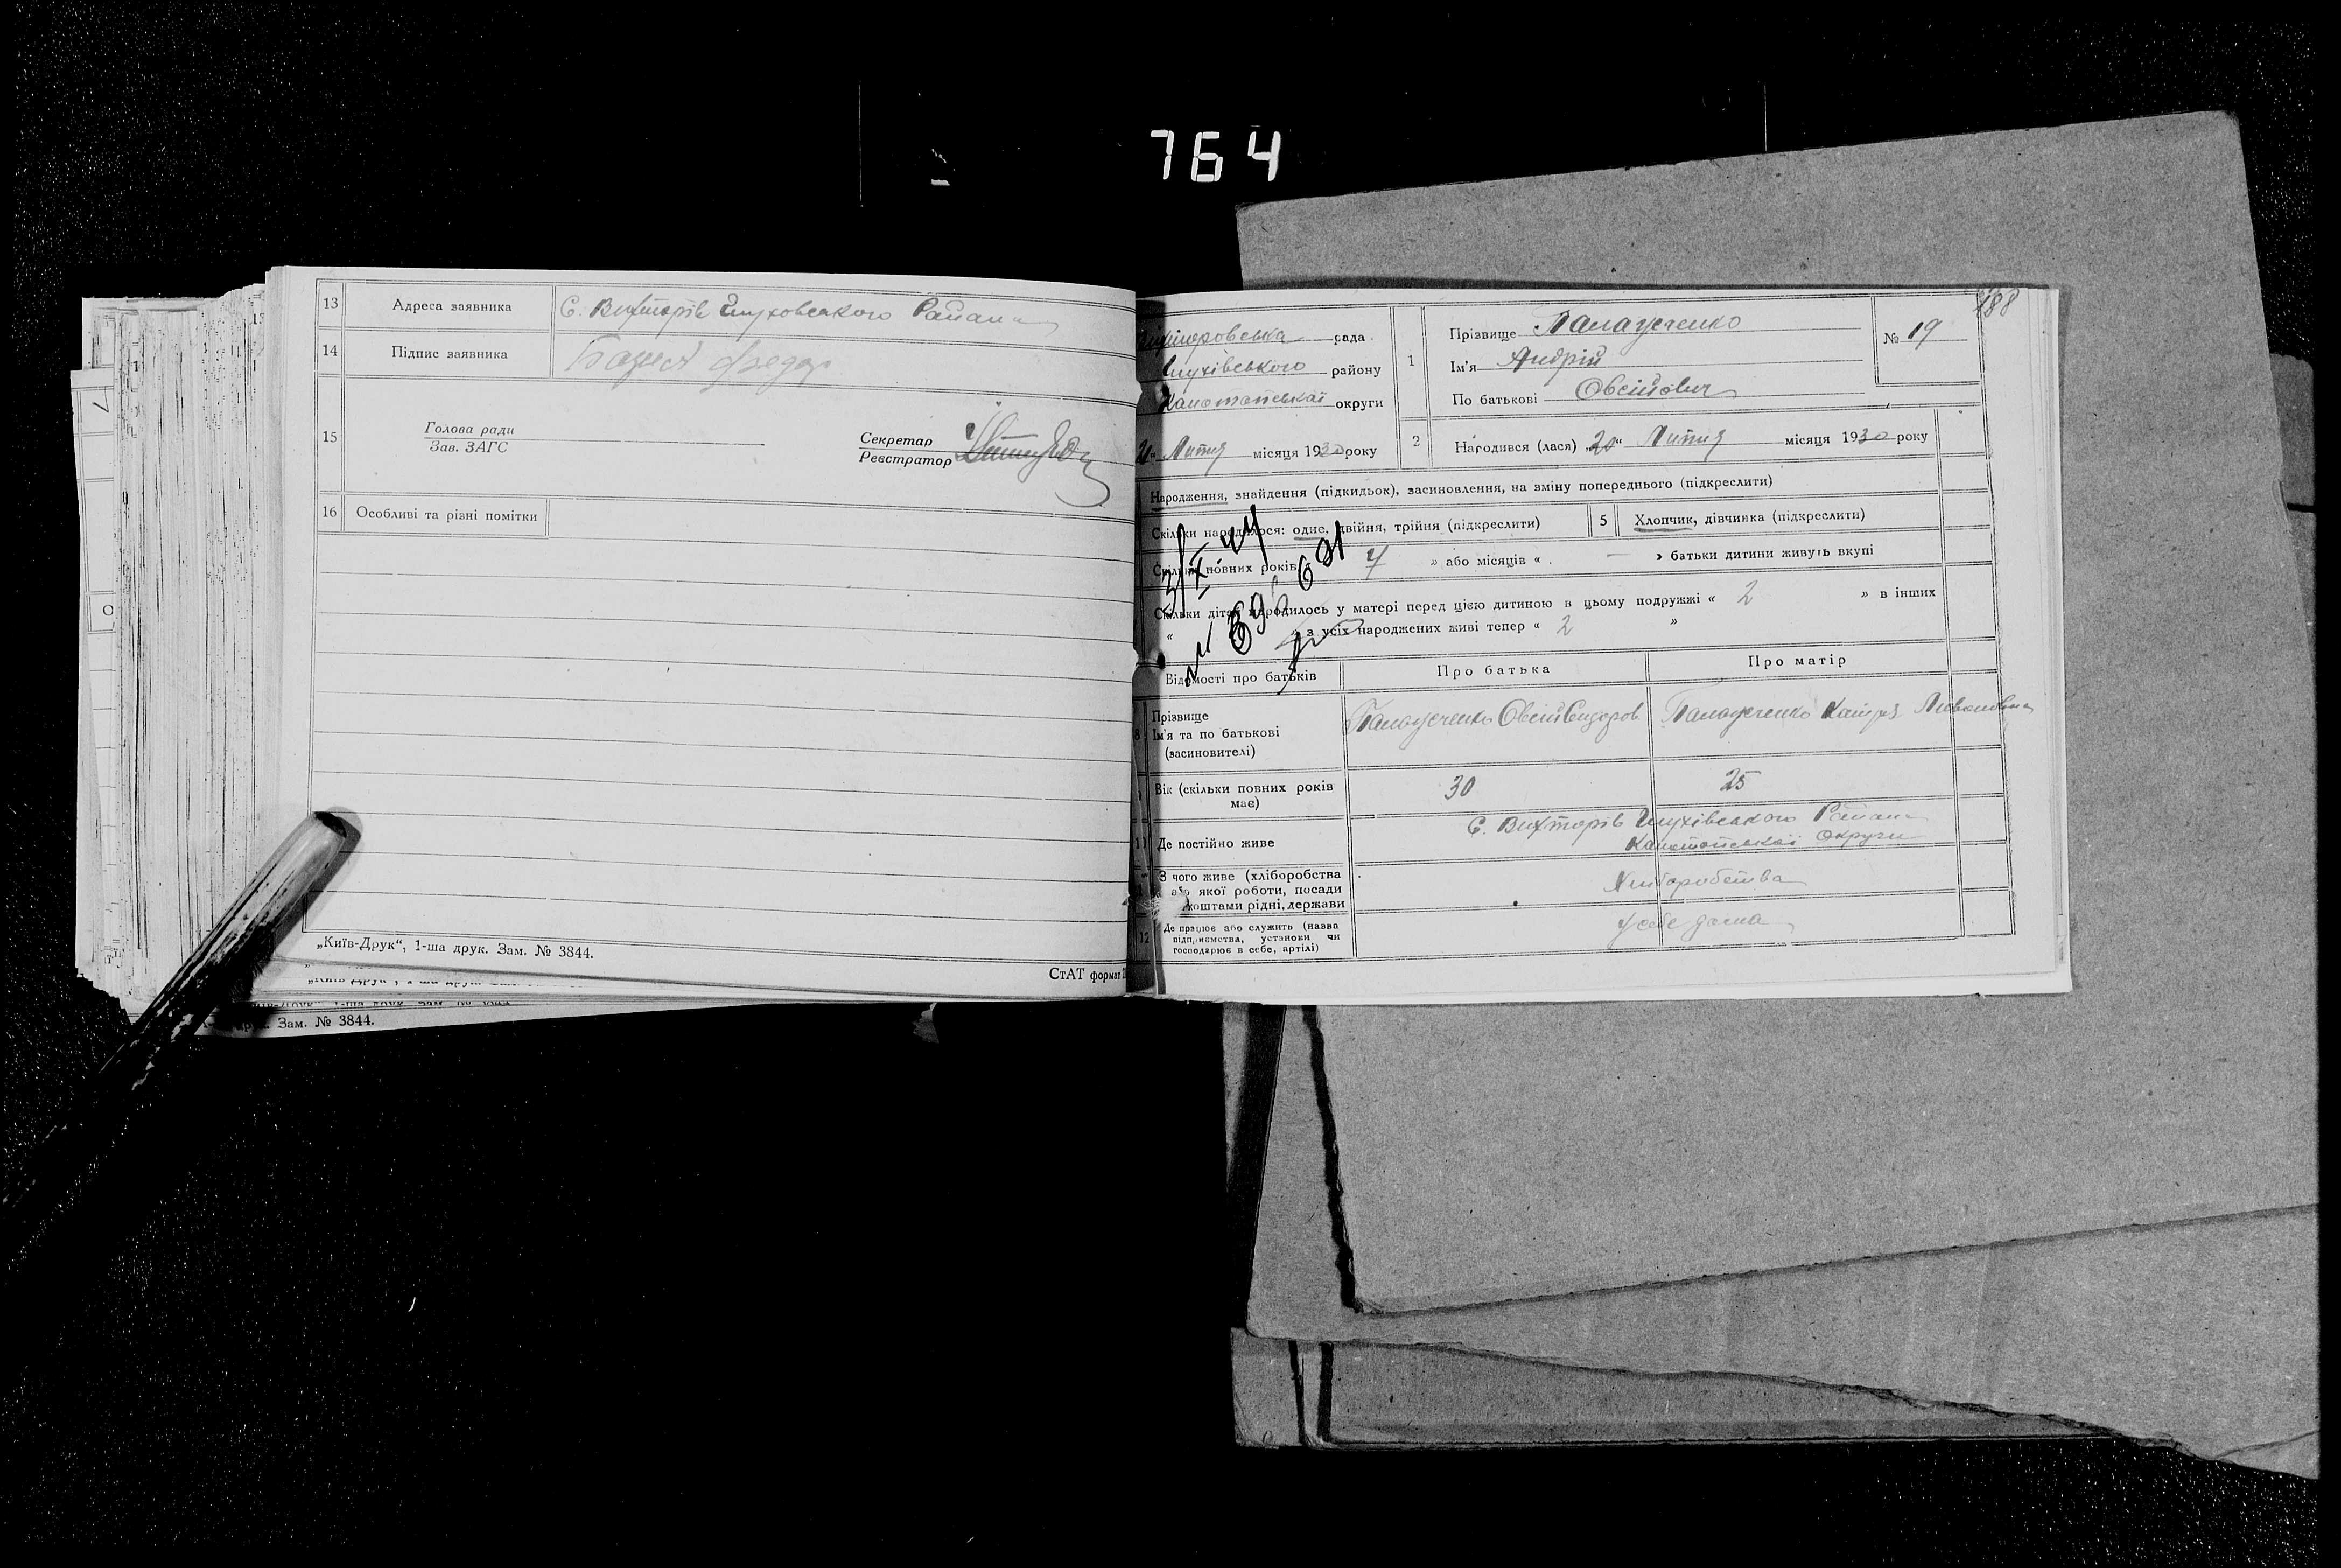 764
13 Адреса заявника С. Вихторів Глуховського Района
14 Підпис заявника Федор
15 Голова ради
Зав. ЗАГС
Секретар
Реєстратор
16 Особливі та різні помітки
„Київ-Друк“, 1-ша друк. Зам. № 3844.
СтАТ формат
Зам. № 3844.
188
сада
Глухівського району
Канотопської округи
20 " Липня місяця 1930 року
1 Прізвище Палащенко
Ім'я Андрій
По батькові Овсійович
№ 19
2 Народився (лася) „20“ Липня місяця 1930 року
Народження, знайдення (підкидьок), засиновлення, на зміну попереднього (підкреслити)
Скільки народилося: одне, двійня, трійня (підкреслити)
5 Хлопчик, дівчинка (підкреслити)
Скільки повних років « 7 » або місяців « — » батьки дитини живуть вкупі
Скільки дітей народилось у матері перед цією дитиною в цьому подружжі « 2 » в інших
« з усіх народжених живі тепер « 2 »
Відомості про батьків
Про батька
Про матір
8 Прізвище
Ім'я та по батькові
(засиновителі)
Палащенко Овсій Сидоров.
Палащенко Катря
Вік (скільки повних років
має)
30
25
10 Де постійно живе
С. Вихторів Глухівського Району
Канотопської Округи
З чого живе (хліборобства
або якої роботи, посади
коштами рідні, держави
Хліборобства
12 Де працює або служить (назва
підприємства, установи чи
господарює в себе, артілі)
У себе дома